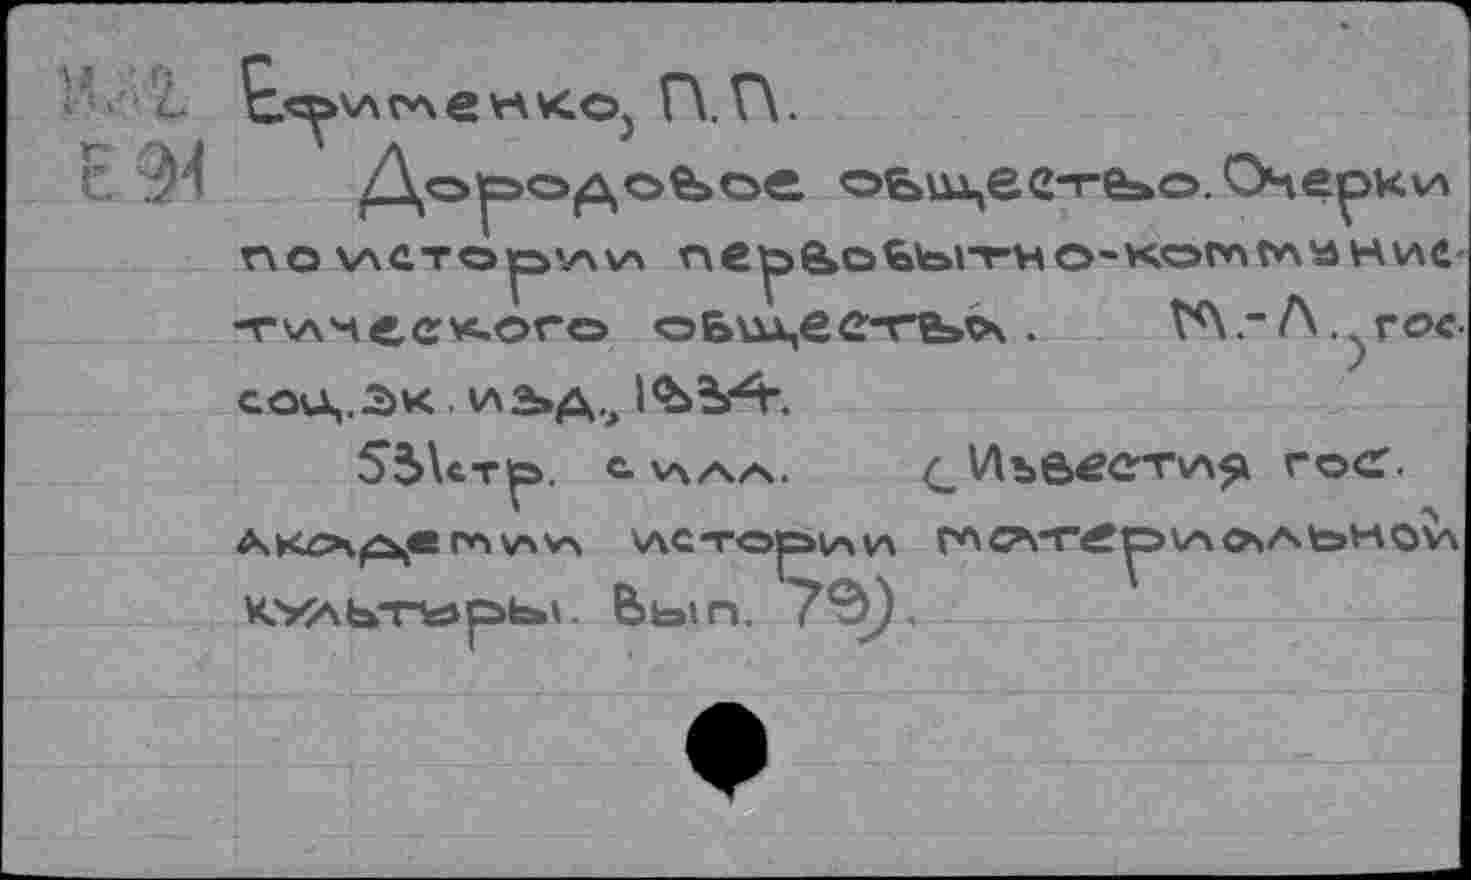 И.2
Е 91
Ефименко, П.П.
Дородовое общество. Очерки
по истории первобытно-коммунис-
тического общества. М.-Л., гос.
соц.эк. изд., 1934.
531стр. с илл. (Известия гос.
академии истории материальной
культуры. Вып. 79).